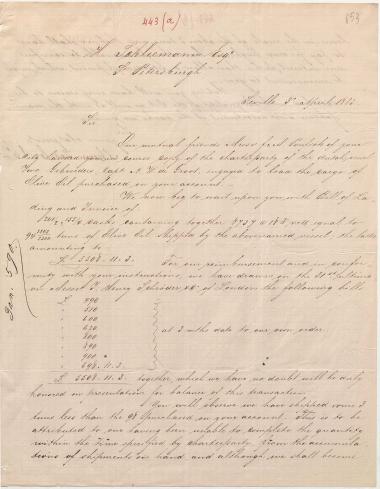 443 (a)
853
H. Schliemann Esqr
St Petersburg
Seville 3d April 18
Sir
Our mutual friends Messrs of your
city handed you in course copy of the charterparty of the vessel
Two Gebroeders Capt N. H. de Groot, engaged to load the cargo of
Olive Oil purchased on your account.
We now beg to wait upon you with Bill of La-
ding and Invoice of
casks containing together equal to
tuns of Olive Oil shipped by the abovenamed vessel, the latter
amounting to
£ 5508. 11. 3. For our reimbursement and in confor-
mity with your instructions, we have drawn on the 31st ultimo
on Messrs J. Henry Schröder &Co of London the following bills
£ 490
510
600
620
at 3 mths date to our own order.
800
890
900
698. 11. 3
£ 5508. 11. 3. together, which we have no doubt will be duly
honored on presentation for balance of this transaction.
You will observe we have shipped some 3
tuns less than the 98 purchased on your account. This is to be
attributed to our having been unable to complete the quantity
within the time specified by charterparty from the accumula-
tions of shipments on hand and although we shall become